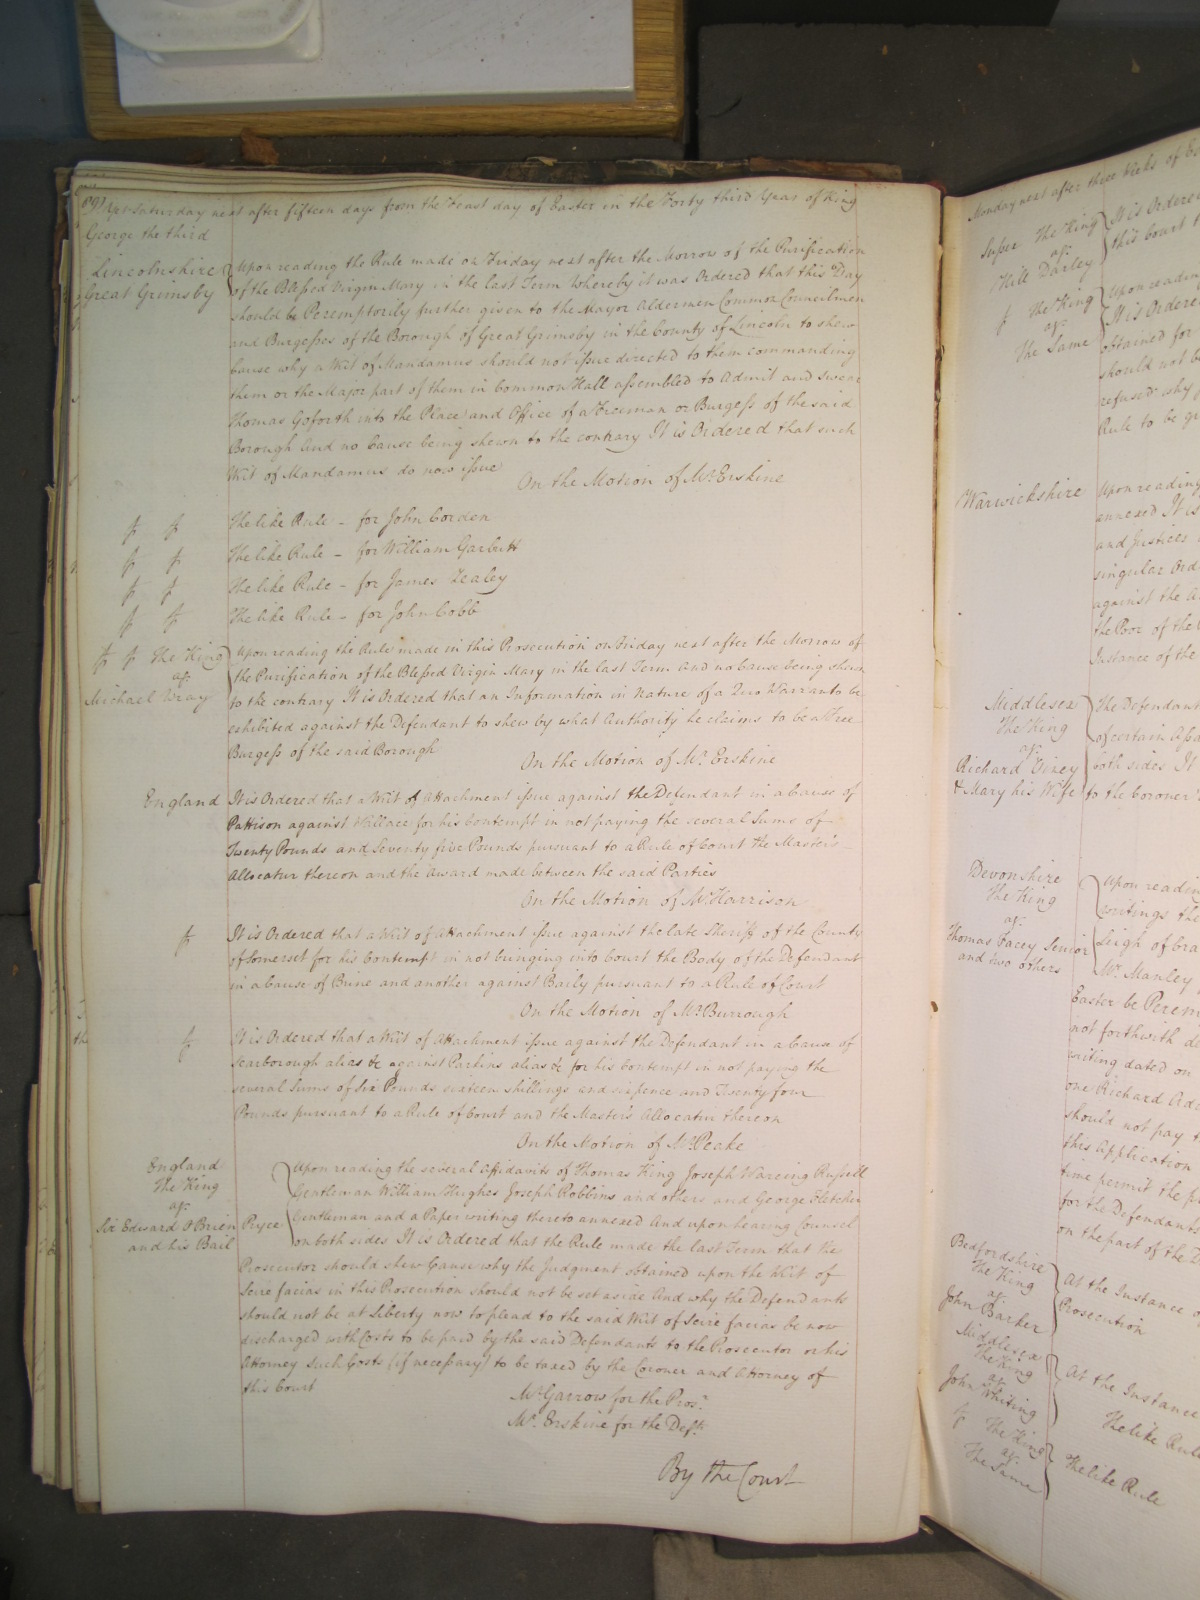 Saturday next after fifteen days from the Feast day of Easter in the Forty third Year of King
George the third
Lincolnshire
Great Grimsby
Upon reading the Rule made on Friday next after the Morrow of the Purification
of the Blessed Virgin Mary in the last Term Whereby it was Ordered that this Day
should be Peremptorily further given to the Mayor Aldermen Common Councilmen
and Burgesses of the Borough of Great Grimsby in the County of Lincoln to shew
Cause why a Writ of Mandamus should not issue directed to them commanding
them or the Major part of them in Common Hall assembled to Admit and swear
Thomas Goforth into the Place and Office of a Freeman or Burgess of the said
Borough And no Cause being shewn to the contrary It is Ordered that such
Writ of Mandamus do now issue
On the Motion of Mr. Erskine
The like Rule - for John Corden
The like Rule - for William Garbutt
The like Rule - for James Tealey
The like Rule - for John Cobb
The King
agt.
Michael Wray
Upon reading the Rule made in this Prosecution on Friday next after the Morrow of
the Purification of the Blessed Virgin Mary in the last Term And no Cause being shewn
to the contrary It is Ordered that an Information in Nature of a Quo Warranto be
exhibited against the Defendant to shew by what Authority he claims to be a Free
Burgess of the said Borough
On the Motion of Mr. Erskine
England
It is Ordered that a Writ of Attachment issue against the Defendant in a Cause of
Pattison against Wallace for his Contempt in not paying the several Sums of
Twenty Pounds and Seventy five Pounds pursuant to a Rule of Court the Master's
Allocatur thereon and the Award made between the said Parties
On the Motion of Mr. Harrison
It is Ordered that a Writ of Attachment issue against the late Sheriff of the County
of Somerset for his Contempt in not bringing into Court the Body of the Defendant
in a Cause of Brine and another against Baily pursuant to a Rule of Court
On the Motion of Mr. Burrough
It is Ordered that a Writ of Attachment issue against the Defendant in a Cause of
Scarborough alias &c against Parkins alias &c for his Contempt in not paying the
several Sums of Six Pounds sixteen shillings and sixpence and Twenty four
Pounds pursuant to a Rule of Court and the Master's Allocatur thereon
On the Motion of Mr. Peake
England
The King
agt.
Sir Edward O Brien Pryce
and his Bail
Upon reading the several Affidavits of Thomas King Joseph Wareing Russell
Gentleman William Hughes Joseph Robbins and others and George Fletcher
Gentleman and a Paper writing thereto annexed And upon hearing Counsel
on both sides It is Ordered that the Rule made the last Term that the
Prosecutor should shew Cause why the Judgment obtained upon the Writ of
Scire facias in this Prosecution should not be set aside And why the Defendants
should not be at Liberty now to plead to the said Writ of Scire facias be now
discharged with Costs to be paid by the said Defendants to the Prosecutor or his
Attorney such Costs (if necessary) to be taxed by the Coroner and Attorney of
this Court
Mr. Garrow for the Pros.r
Mr. Erskine for the Defts.
By the Court
Monday next after three Weeks of
The King
agt.
Will Darley
It is Ordered
this Court
The King
agt.
The Same
Upon reading
It is Ordere
obtained for
should not b
refused why
Rule to be g
Warwickshire
Upon reading
annexed It is
and Justices
singular Ord
against the
the Poor of the
Instance of the
Middlesex
The King
agt.
Richard Viney
& Mary his Wife
The Defendant
of certain
both sides It
to the Coroner
Devonshire
The King
agt.
Thomas Facey Senior
and two others
Upon readin
writings the
Leigh of
Mr. Manley
Easter be Perem
not forthwith de
writing dated on
one Richard
should not pay
this Application
time permit the
for the Defendants
on the part of the
Bedfordshire
The King
agt.
John Barker
At the Instance
Prosecution
Middlesex
The King
agt.
John Whiting
At the Instance
The like Rule
The King
agt.
The Same
The like Rule